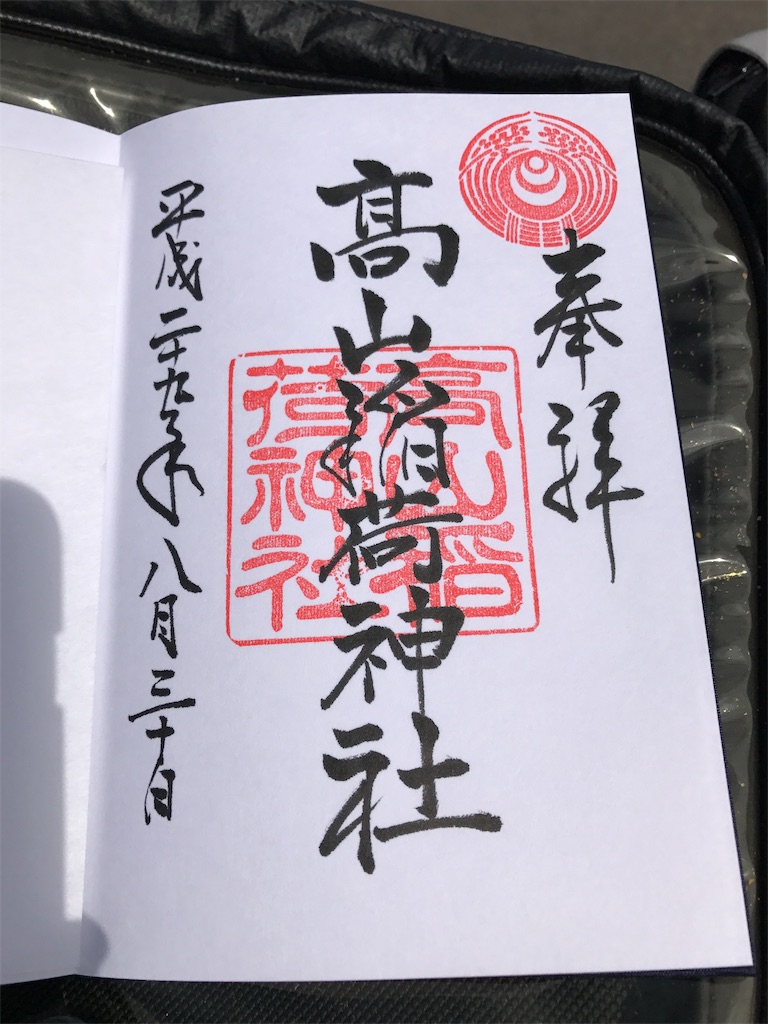 奉拝
髙山稲荷神社
高山稲
荷神社
平成二十九年八月三十日